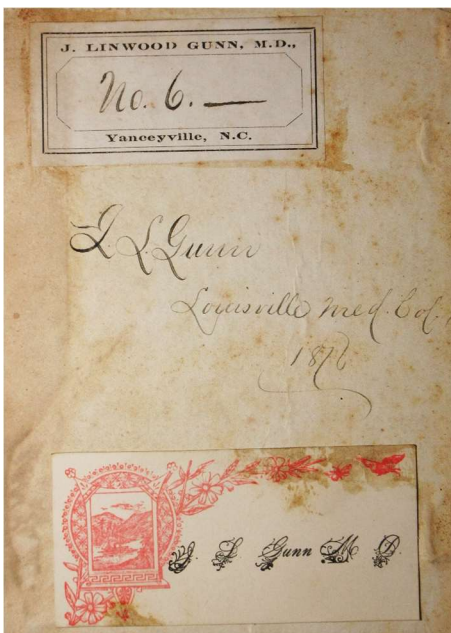 J. LINWOOD GUNN, M.D.,
No. 6. —
Yanceyville, N.C.
J. L. Gunn
Louisville Med. Col.
1876
J. L. Gunn M. D.